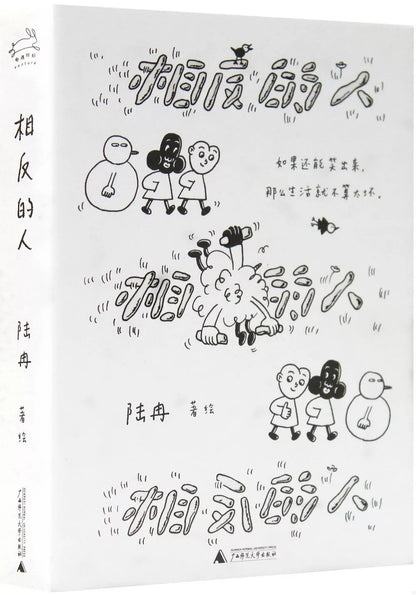 相反的人
陆冉
著绘
广西师范大学出版社
相反的人
如果还能笑出来,
那么生活就不算太坏。
相 的人
陆冉 著绘
相反的人
广西师范大学出版社